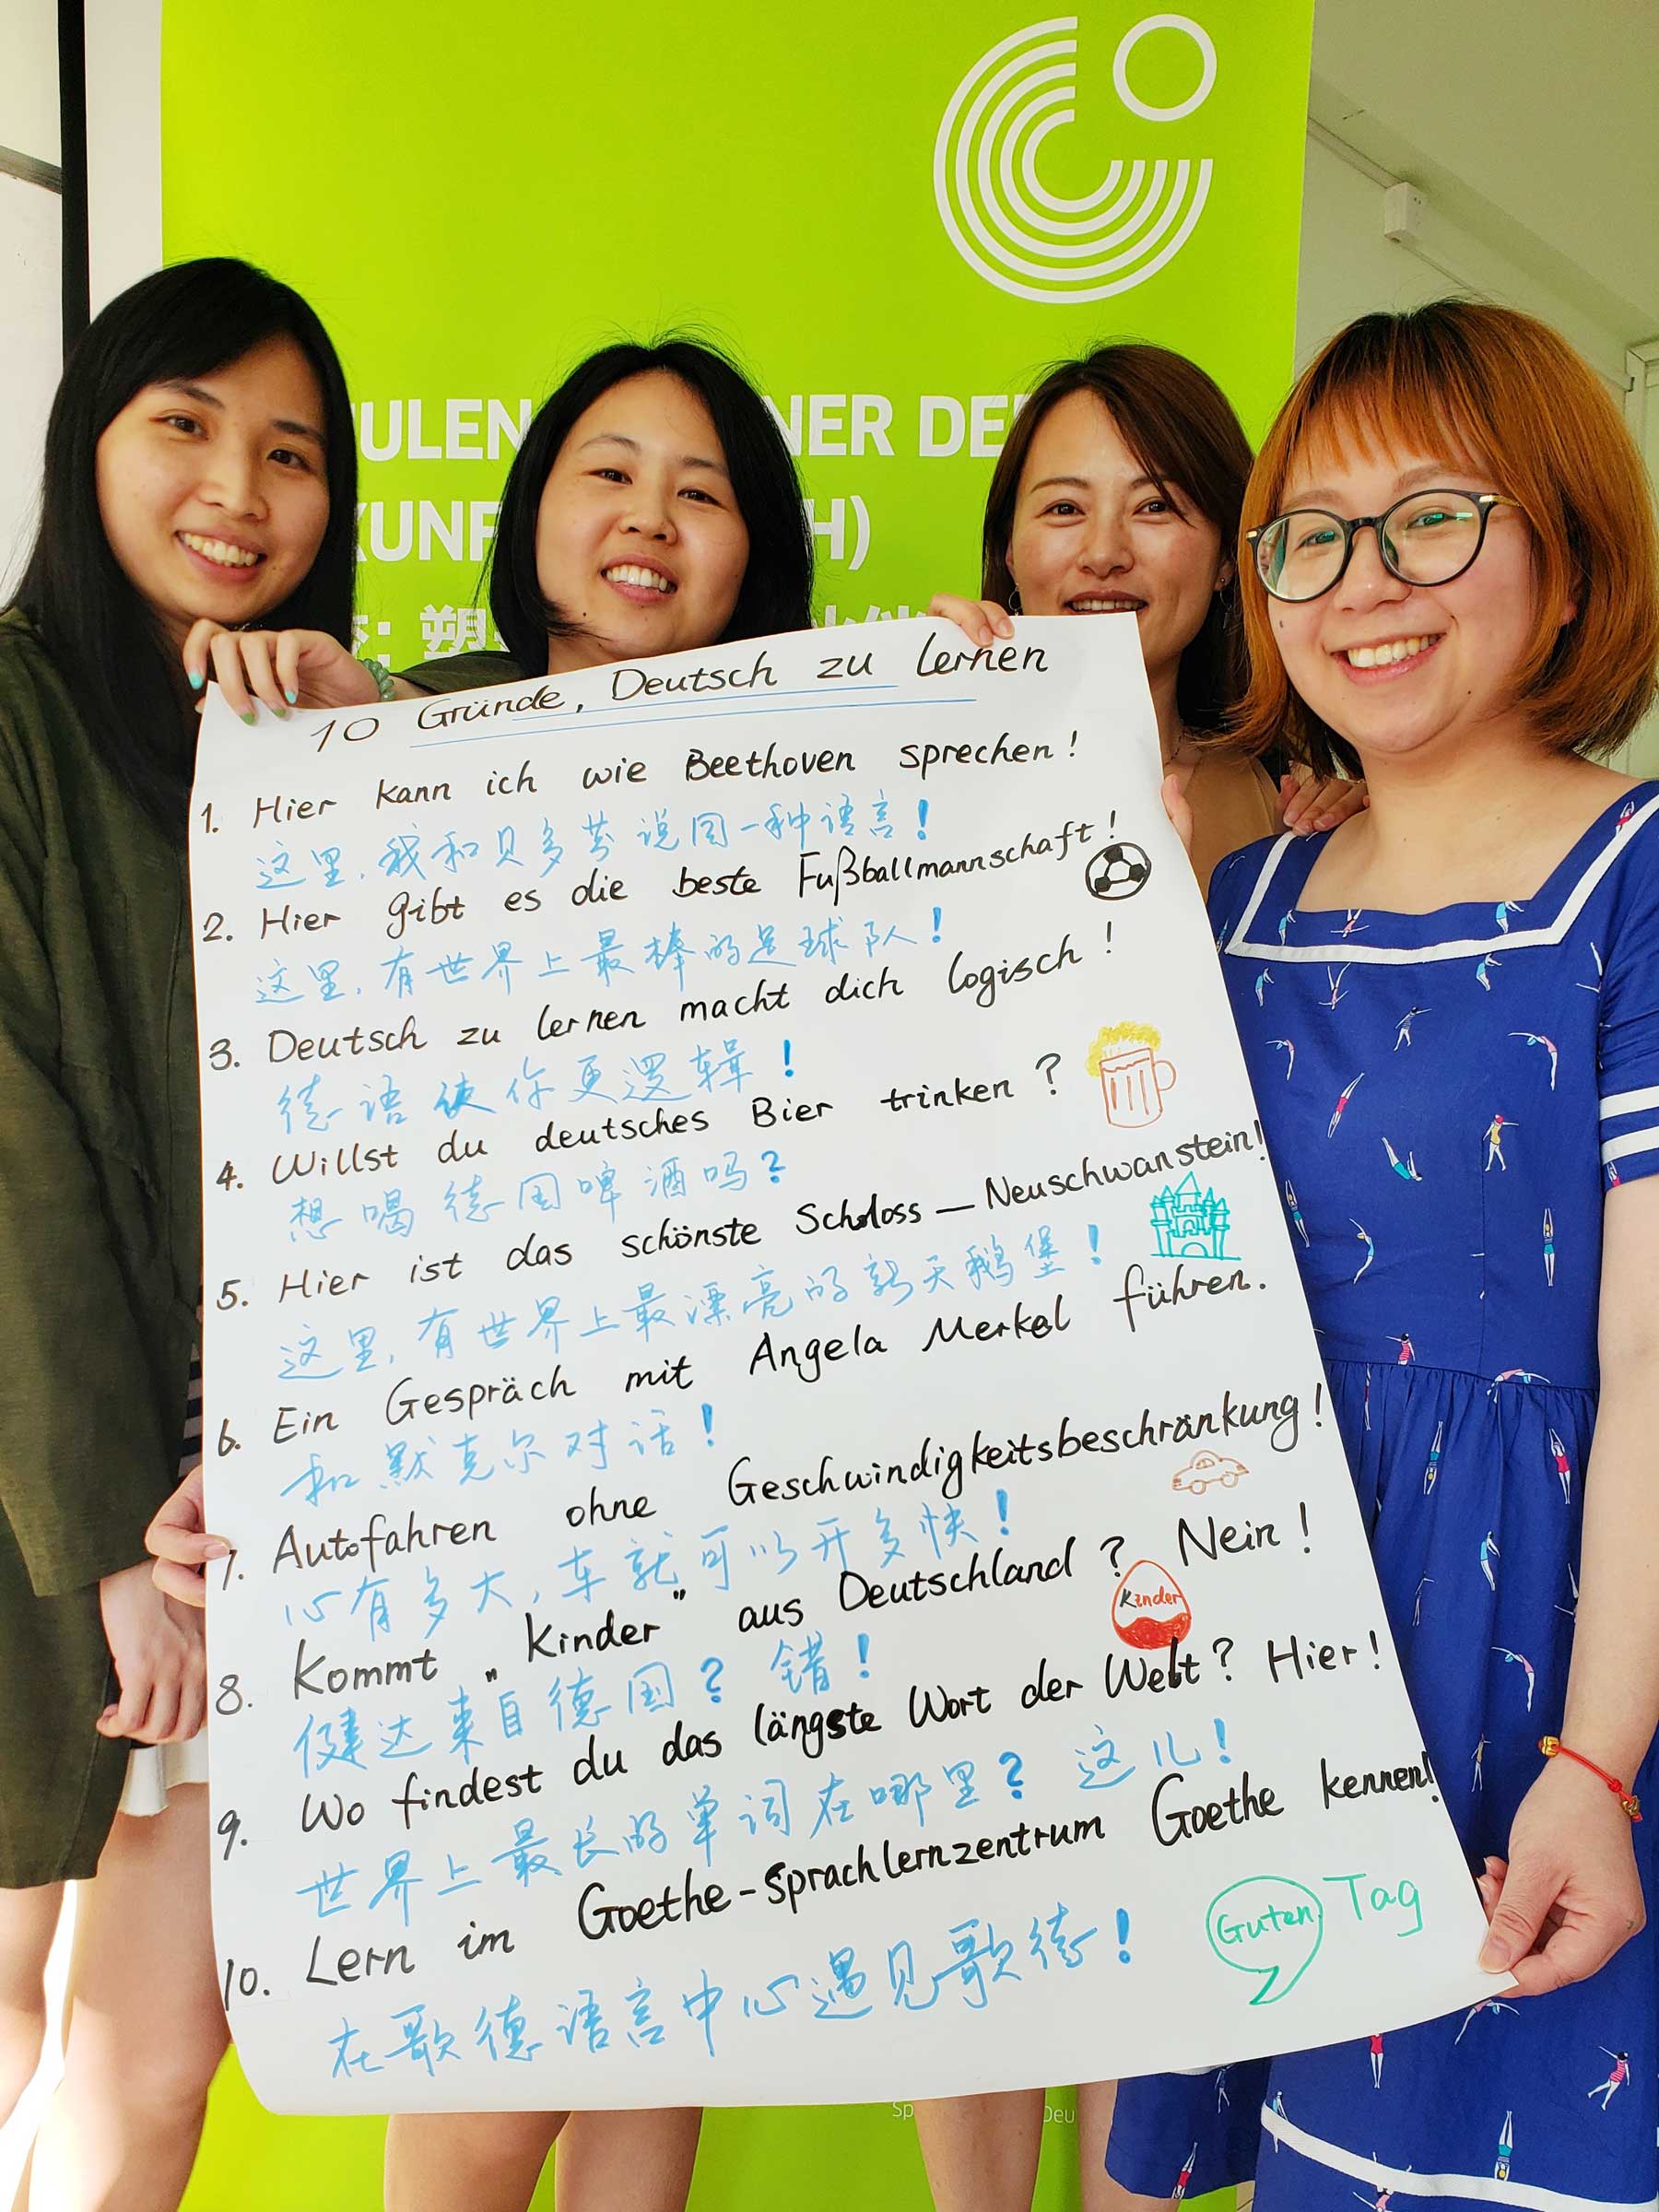 ULEN NER DE
KUNF H)
塑
10 Gründe, Deutsch zu lernen
1. Hier kann ich wie Beethoven sprechen!
这里,我和贝多芬说同一种语言!
2. Hier gibt es die beste Fußballmannschaft!
这里,有世界上最棒的足球队!
3. Deutsch zu lernen macht dich logisch!
德语使你更逻辑!
4. Willst du deutsches Bier trinken?
想喝德国啤酒吗?
5. Hier ist das schönste Schloss — Neuschwanstein!
这里,有世界上最漂亮的新天鹅堡!
6. Ein Gespräch mit Angela Merkel führen.
和默克尔对话!
7. Autofahren ohne Geschwindigkeitsbeschränkung!
心有多大,车就可以开多快!
8. Kommt „Kinder" aus Deutschland? Nein!
Kinder
健达来自德国?错!
9. Wo findest du das längste Wort der Welt? Hier!
世界上最长的单词在哪里?这儿!
10. Lern im Goethe-Sprachlernzentrum Goethe kennen!
在歌德语言中心遇见歌德!
Guten Tag
Sp Deu